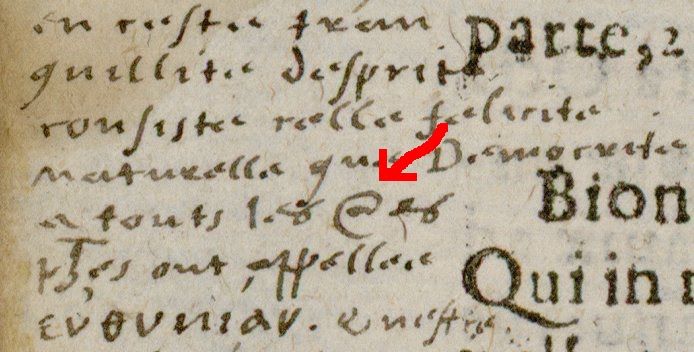 en ceste tran
quillite desprit
consiste celle felicite
naturelle que Democrite
touts les @es
ont appellee
εὐθυμίαν.
parte,
Bion
Qui in